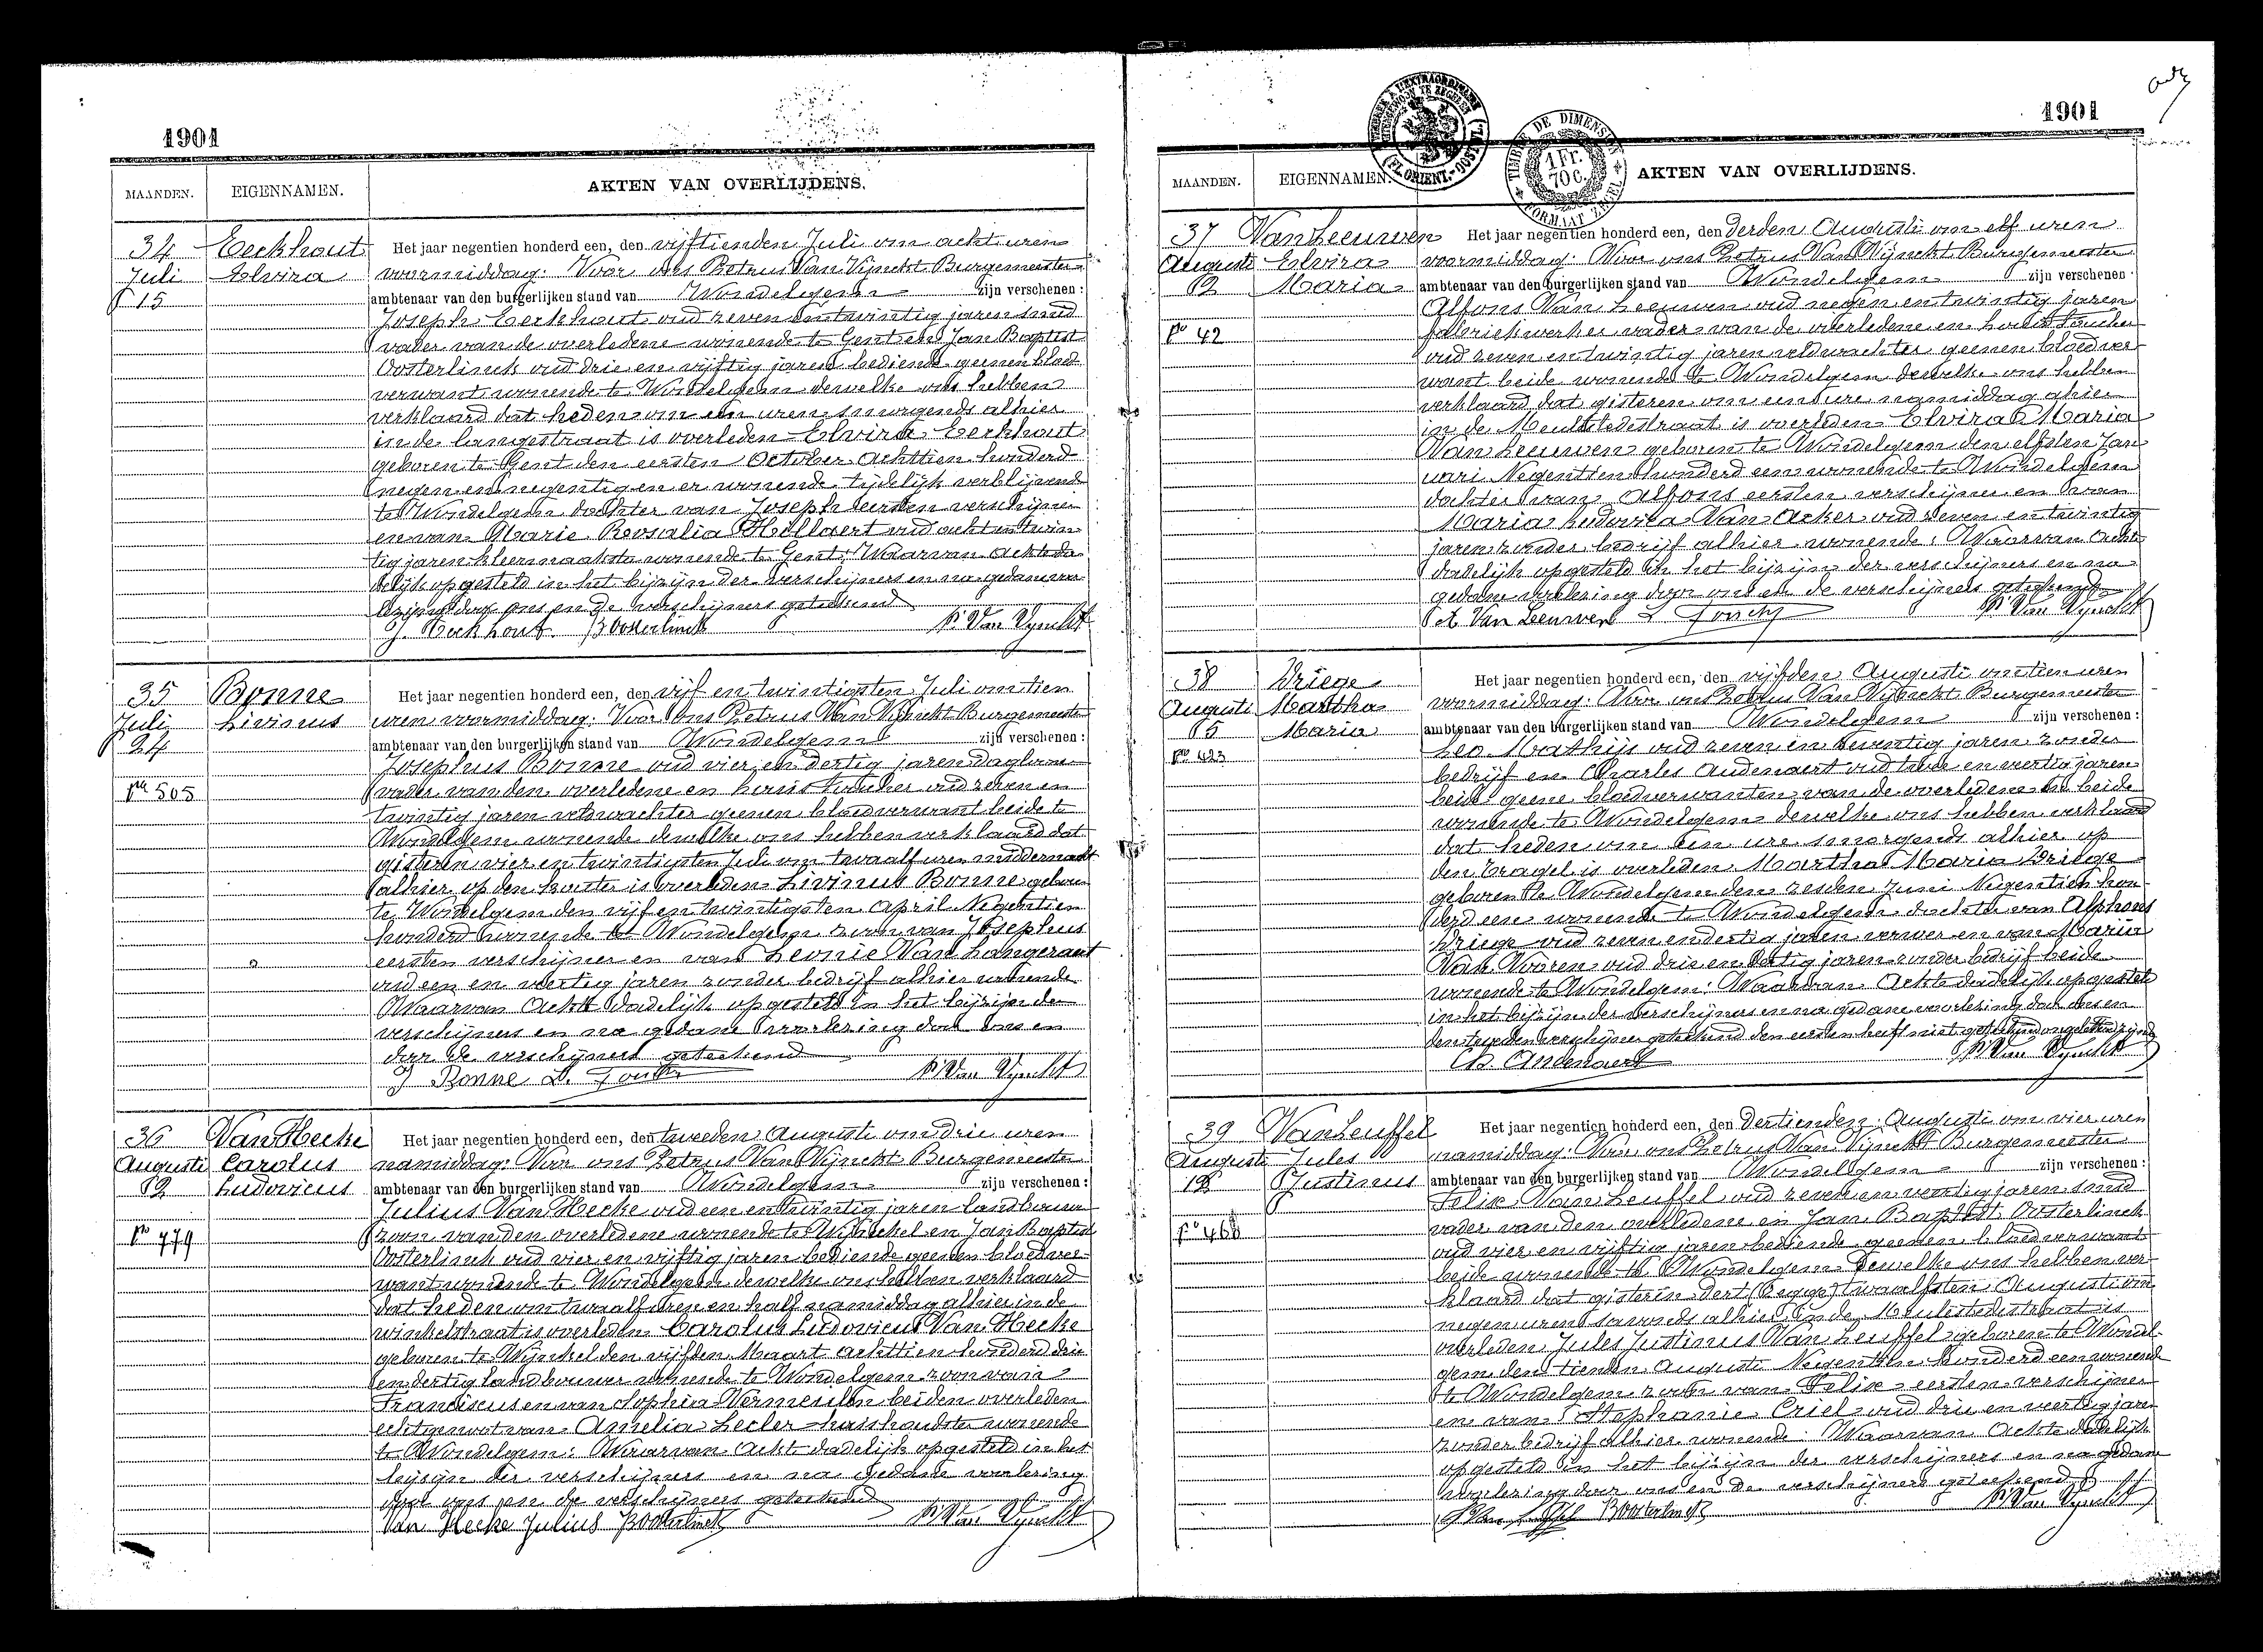 1901
MAANDEN. EIGENNAMEN. AKTEN VAN OVERLIJDENS.
34
Juli
15
Eeckhout
Elvira
Het jaar negentien honderd een, den vijftienden Juli om acht uren
voormiddag. Voor ons Petrus Van Vijnckt Burgemeester
ambtenaar van den burgerlijken stand van Wondelgem zijn verschenen :
Joseph Eeckhout oud zeven en twintig jaren smid
vader van de overledene wonende te Gent en Jan Baptist
Oosterlinck oud drie en vijftig jaren bediende geenen bloed
verwant wonende te Wondelgem dewelke ons hebben
verklaard dat heden om een uren smorgends alhier
in de langestraat is overleden Elvira Eeckhout
geboren te Gent den eersten October achttien honderd
negen en negentig en er wonende tijdelijk verblijvende
te Wondelgem dochter van Joseph eersten verschijner
en van Marie Roosalia Hellaert oud acht en twin
tig jaren kleermaakster wonende te Gent. Waarvan Ackt da
delijk opgesteld in het bijzijn der verschijners en na gedane voor
lezing door ons en de verschijners geteekend
J. Eeckhout B Oosterlinck P. Van Vynckt
35
Juli
24
No 505
Bonne
Livinus
Het jaar negentien honderd een, den vijf en twintigsten Juli om tien
uren voormiddag. Voor ons Petrus Van Vijnckt Burgemeester
ambtenaar van den burgerlijken stand van Wondelgem zijn verschenen :
Josephus Bonne oud vier en dertig jaren dagloner
vader van den overledene en Louis Foucher oud zeven en
twintig jaren veldwachter geenen bloedverwant beide te
Wondelgem wonende dewelke ons hebben verklaard dat
gisteren vier en twintigsten Juli om twaalf uren middernacht
alhier op den kouter is overleden Livinus Bonne geboren
te Wondelgem den vijf en twintigsten April Negentien
honderd wonende te Wondelgem zoon van Josephus
eersten verschijner en van Leonie Van Langeraert
oud een en veertig jaren zonder bedrijf alhier wonende
Waarvan Ackt dadelijk opgesteld in het bijzijn der
verschijners en na gedane voorlezing door ons en
door de verschijners geteekend
J Bonne L. P. Van Vynckt
36
Augusti
2
No 779
Van Hecke
Carolus
Ludovicus
Het jaar negentien honderd een, den tweeden Augusti om drie uren
namiddag. Voor ons Petrus Van Vijnckt Burgemeester
ambtenaar van den burgerlijken stand van Wondelgem zijn verschenen :
Julius Van Hecke oud een en twintig jaren landbouwer
zoon van den overledene wonende te Wijnckel en Jan Baptist
Oosterlinck oud vier en vijftig jaren bediende geenen bloedver-
want wonende te Wondelgem dewelke ons hebben verklaard
dat heden om twaalf uren en half namiddag alhier in de
winkelstraat is overleden Carolus Ludovicus Van Hecke
geboren te Wijnckel den vijfden Maart achttien honderd drie
en dertig landbouwer wonende te Wondelgem zoon van
Franciscus en van Sophia Vermeulen beiden overleden
echtgenoot van Amelia Lecler huishoudster wonende
te Wondelgem. Waarvan Ackt dadelijk opgesteld in het
bijzijn der verschijners en na gedane voorlezing
door ons en de verschijners geteekend
Van Hecke Julius B Oosterlinck P. Van Vynckt
1901
TIMBRE DE DIMENSION
1 Fr.
70 c.
FORMAAT ZEGEL
(FL. ORIENT.-OOST VL.)
MAANDEN. EIGENNAMEN. AKTEN VAN OVERLIJDENS.
37
Augusti
2
No 42
Van Leeuwen
Elvira
Maria
Het jaar negentien honderd een, den derden Augusti om elf uren
voormiddag. Voor ons Petrus Van Vijnckt Burgemeester
ambtenaar van den burgerlijken stand van Wondelgem zijn verschenen :
Alfons Van Leeuwen oud negen en twintig jaren
fabriekwerker vader van de overledene en Louis Foucher
oud zeven en twintig jaren veldwachter geenen bloedver
want beide wonende te Wondelgem dewelke ons hebben
verklaard dat gisteren om een ure namiddag alhier
in de Meulestedestraat is overleden Elvira Maria
Van Leeuwen geboren te Wondelgem den elfsten Jan
uari Negentien honderd een wonende te Wondelgem
dochter van Alfons eersten verschijner en van
Maria Ludovica Van Acker oud zeven en twintig
jaren zonder bedrijf alhier wonende. Waarvan Ackt
dadelijk opgesteld in het bijzijn der verschijners en na
gedane voorlezing door ons en de verschijners geteekend
A Van Leeuwen L P. Van Vynckt
38
Augusti
5
No 423
Driege
Martha
Maria
Het jaar negentien honderd een, den vijfden Augusti om tien uren
voormiddag. Voor ons Petrus Van Vijnckt Burgemeester
ambtenaar van den burgerlijken stand van Wondelgem zijn verschenen :
Leo Mathijs oud zeven en zeventig jaren zonder
bedrijf en Charles Audenaert oud twee en veertig jaren
beide geene bloedverwanten van de overledene en beide
wonende te Wondelgem dewelke ons hebben verklaard
dat heden om een ure smorgends alhier op
den tragel is overleden Martha Maria Driege
geboren te Wondelgem den zesden Juni Negentien hon
derd een wonende te Wondelgem dochter van Alphons
Driege oud zeven en dertig jaren verwer en van Maria
Van Vooren oud drie en dertig jaren zonder bedrijf beide
wonende te Wondelgem. Waarvan Ackt dadelijk opgesteld
in het bijzijn der verschijners en na gedane voorlezing door ons en
den tweeden verschijner geteekend den eersten heeft niet geteekend ongeletterd zijnde
Ch. Audenaert P. Van Vynckt
39
Augusti
12
No 468
Van Leuffel
Jules
Justinus
Het jaar negentien honderd een, den dertienden Augusti om vier uren
namiddag. Voor ons Petrus Van Vijnckt Burgemeester
ambtenaar van den burgerlijken stand van Wondelgem zijn verschenen :
Felix Van Leuffel oud zeven en veertig jaren smid
vader van den overledene en Jan Baptist Oosterlinck
oud vier en vijftig jaren bediende geenen bloedverwant
beide wonende te Wondelgem dewelke ons hebben ver-
klaard dat gisteren dert (zegge) twaalfsten Augusti om
negen uren savonds alhier in de Meulestedestraat is
overleden Jules Justinus Van Leuffel geboren te Wondel-
gem den tienden Augusti Negentien honderd een wonende
te Wondelgem zoon van Felix eersten verschijner
en van Stephanie Criel oud drie en veertig jaren
zonder bedrijf alhier wonende. Waarvan Ackt dadelijk
opgesteld in het bijzijn der verschijners en na gedane
voorlezing door ons en de verschijners geteekend
B Oosterlinck P. Van Vynckt